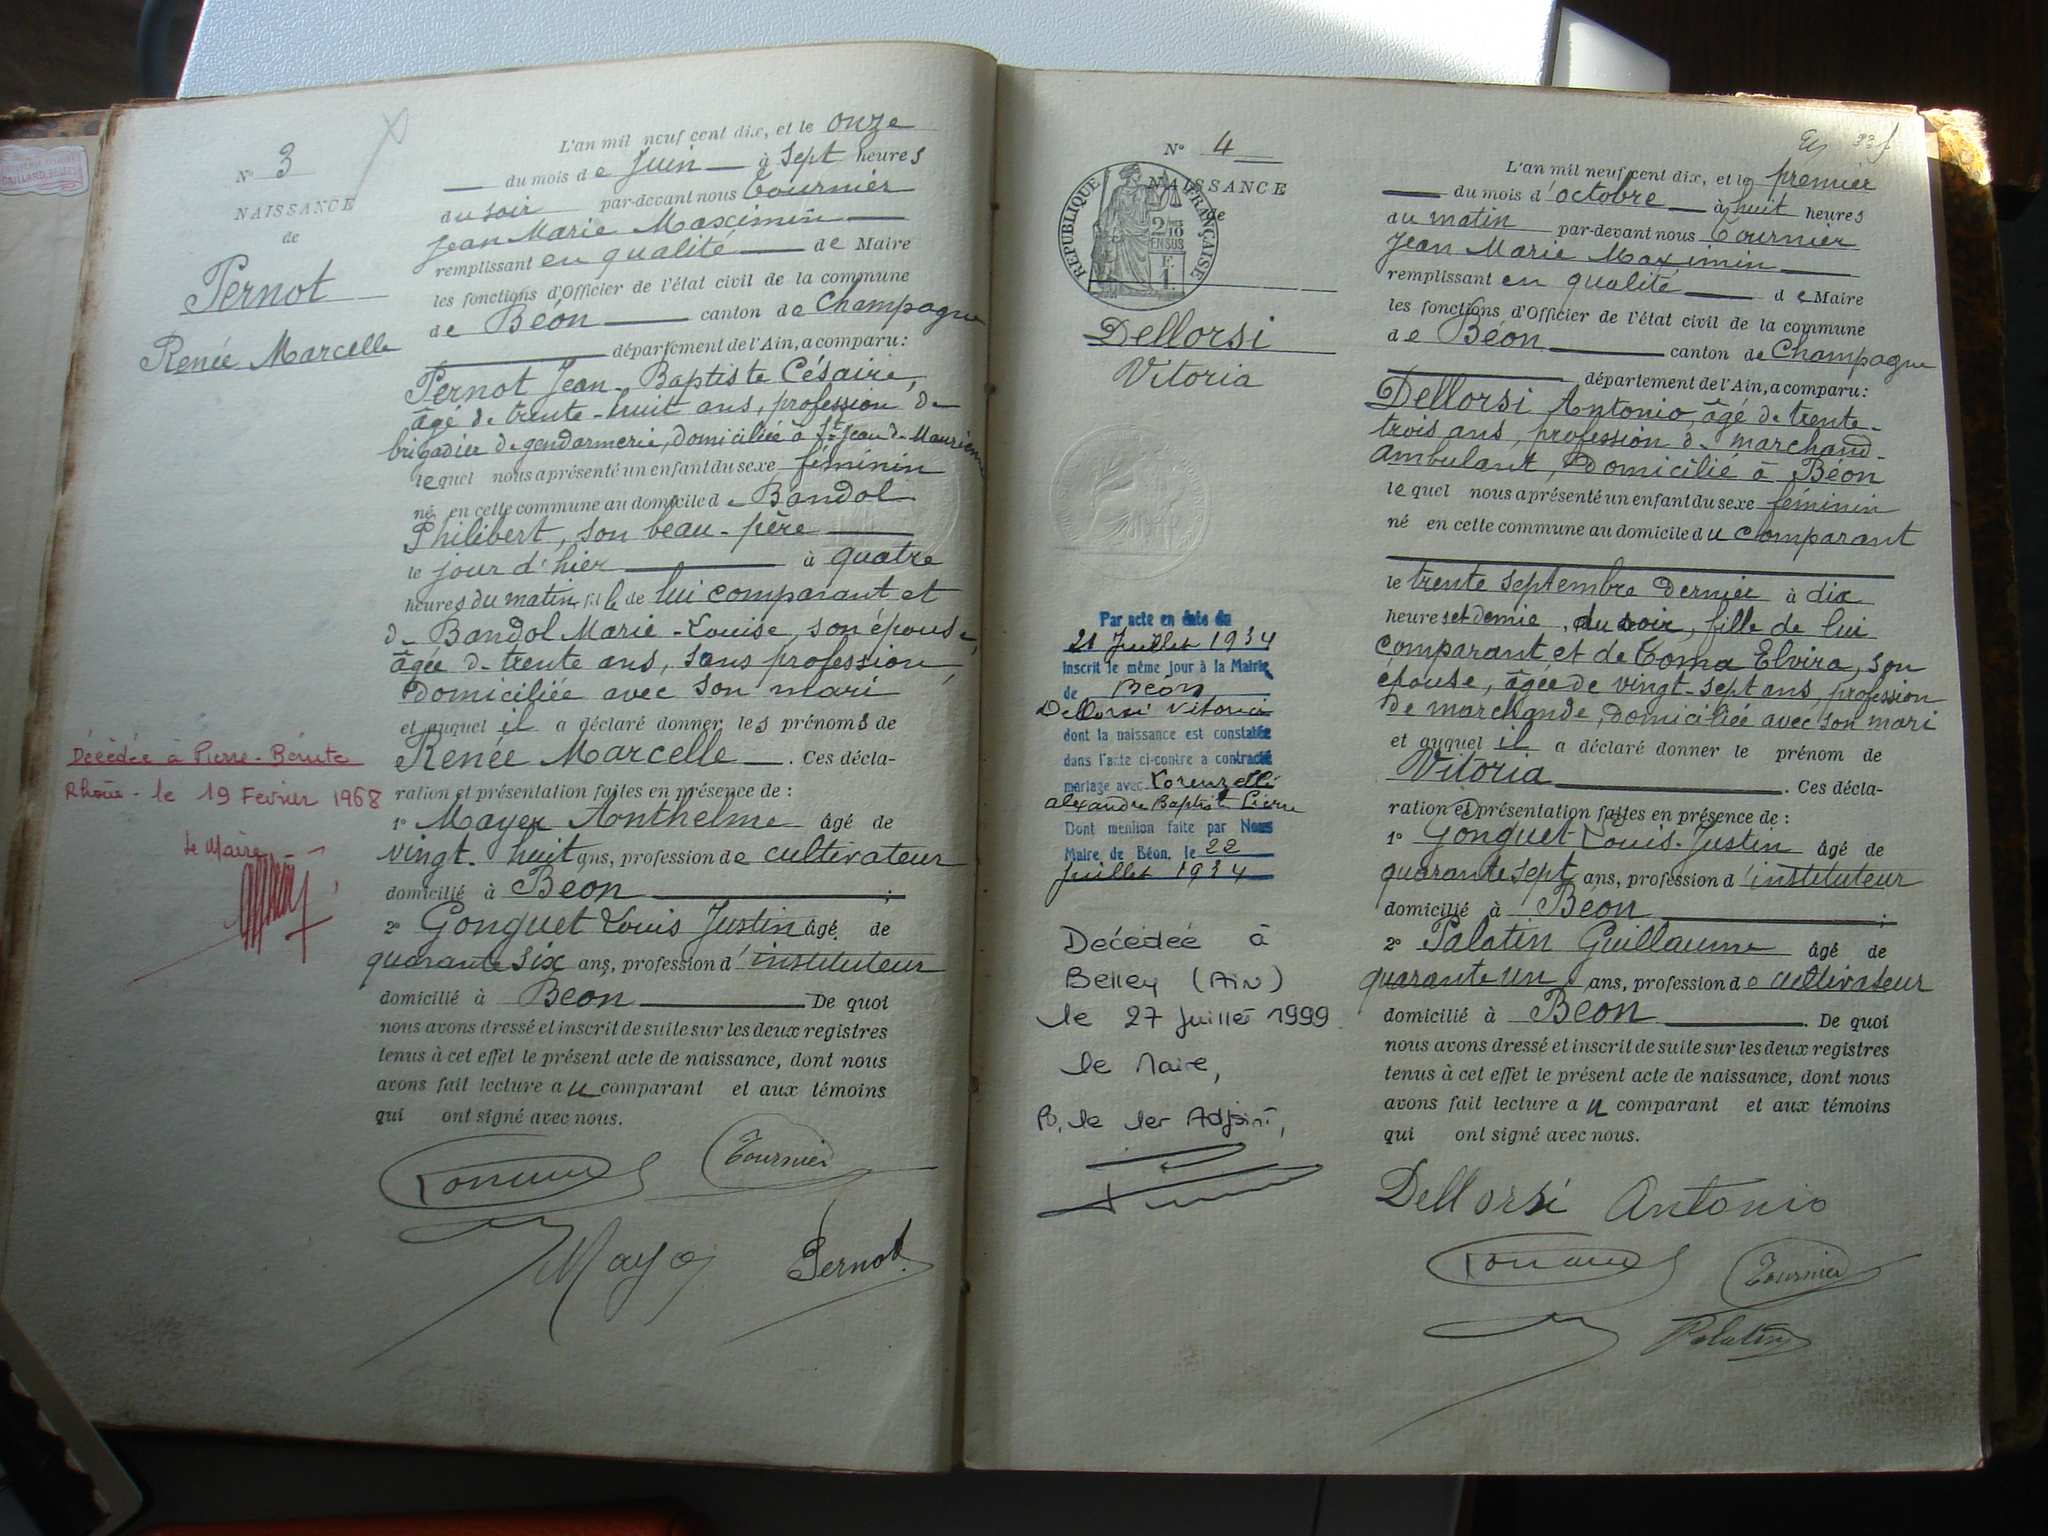 GAILLARD, BELLEY
N° 3
NAISSANCE
de
Pernot
Renée Marcelle
Décédée à Pierre-Bénite
Rhône - le 19 Février 1968
Le Maire
L'an mil neuf cent dix, et le onze
du mois de Juin à sept heures
du soir par-devant nous Tournier
Jean Marie Maximin
remplissant en qualité de Maire
les fonctions d'Officier de l'état civil de la commune
de Béon canton de Champagne
département de l'Ain, a comparu :
Pernot Jean-Baptiste Césaire,
âgé de trente-huit ans, profession de
brigadier de gendarmerie, domicilié à St Jean-de-Maurienne
lequel nous a présenté un enfant du sexe féminin
né en cette commune au domicile de Bandol
Philibert, son beau-père
le jour d'hier à quatre
heures du matin, fille de lui comparant et
de Bandol Marie-Louise, son épouse,
âgée de trente ans, sans profession,
domiciliée avec son mari
et auquel il a déclaré donner les prénoms de
Renée Marcelle. Ces décla-
ration et présentation faites en présence de :
1° Mayer Anthelme âgé de
vingt-huit ans, profession de cultivateur
domicilié à Béon ;
2° Gonguet Louis Justin âgé de
quarante six ans, profession d'instituteur
domicilié à Béon De quoi
nous avons dressé et inscrit de suite sur les deux registres
tenus à cet effet le présent acte de naissance, dont nous
avons fait lecture au comparant et aux témoins
qui ont signé avec nous.
Tournier
Mayer
Pernot
N° 4
NAISSANCE
de
RÉPUBLIQUE FRANÇAISE
2/10
EN SUS
Dellorsi
Vitoria
Par acte en date du
21 Juillet 1934
inscrit le même jour à la Mairie
de Béon
Dellorsi Vitoria
dont la naissance est constatée
dans l'acte ci-contre a contracté
mariage avec Lorenzelli
Alexandre Baptiste Pierre
Dont mention faite par Nous
Maire de Béon, le 22
Juillet 1934
Décédée à
Belley (Ain)
le 27 Juillet 1999
le Maire,
P. le 1er Adjoint,
L'an mil neuf cent dix, et le premier
du mois d'octobre à huit heures
du matin par-devant nous Tournier
Jean Marie Maximin
remplissant en qualité de Maire
les fonctions d'Officier de l'état civil de la commune
de Béon canton de Champagne
département de l'Ain, a comparu :
Dellorsi Antonio, âgé de trente-
trois ans, profession de marchand-
ambulant, domicilié à Béon
lequel nous a présenté un enfant du sexe féminin
né en cette commune au domicile du comparant
le trente septembre dernier à dix
heures et demie du soir, fille de lui
comparant et de Toma Elvira, son
épouse, âgée de vingt-sept ans, profession
de marchande, domiciliée avec son mari
et auquel il a déclaré donner le prénom de
Vitoria. Ces décla-
ration et présentation faites en présence de :
1° Gonguet Louis-Justin âgé de
quarante sept ans, profession d'instituteur
domicilié à Béon ;
2° Palatin Guillaume âgé de
quarante un ans, profession de cultivateur
domicilié à Béon. De quoi
nous avons dressé et inscrit de suite sur les deux registres
tenus à cet effet le présent acte de naissance, dont nous
avons fait lecture au comparant et aux témoins
qui ont signé avec nous.
Dellorsi Antonio
Tournier
Palatin